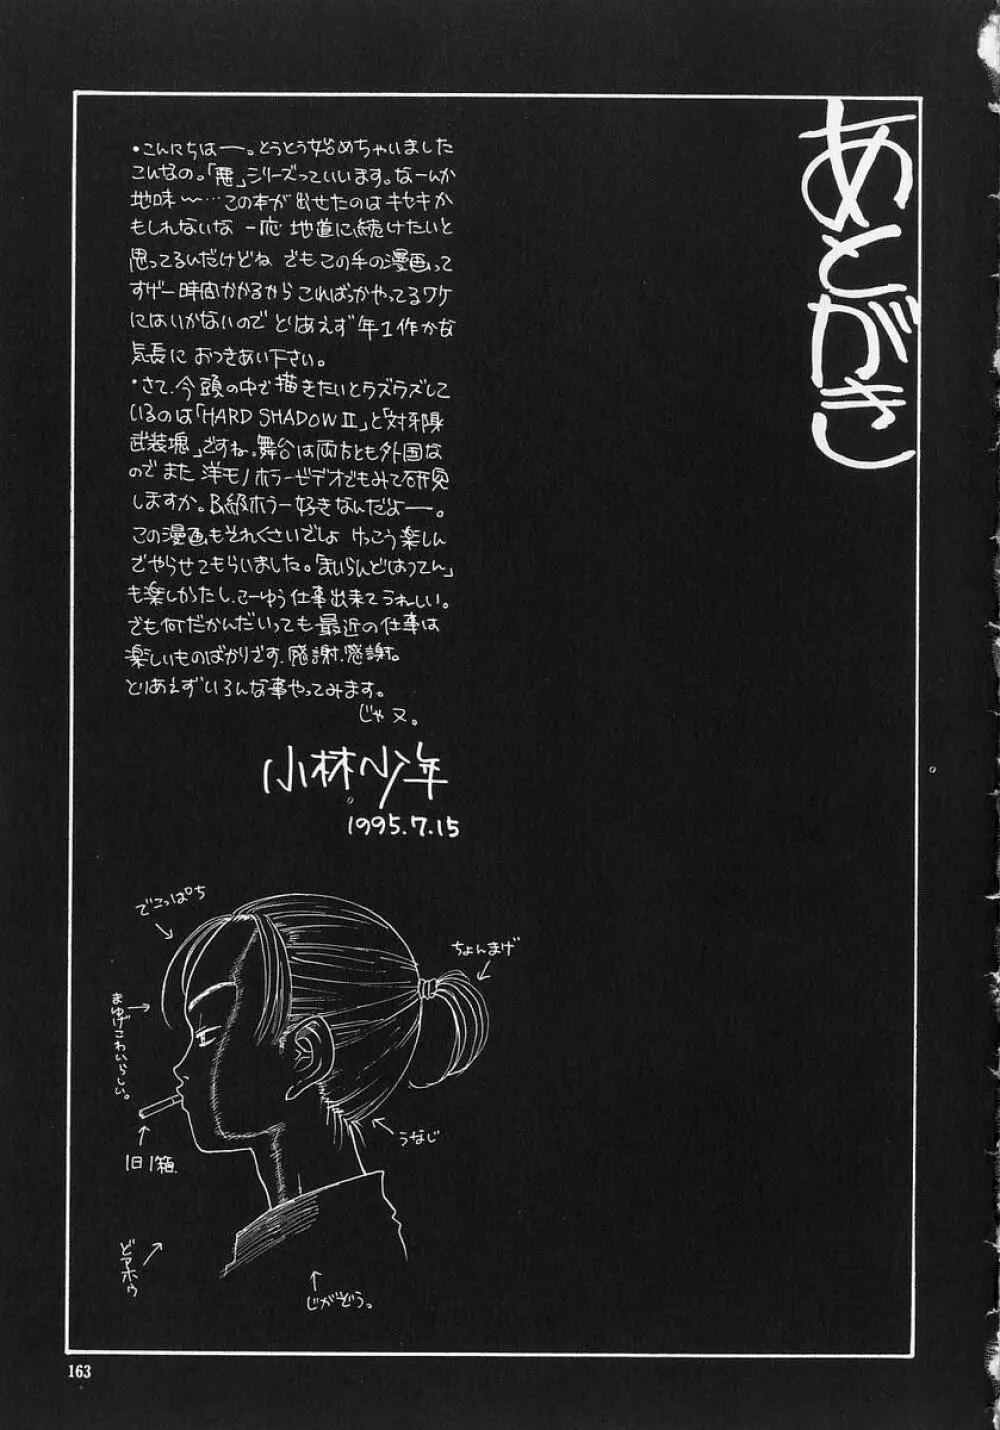 あとがき
・こんにちはー。とうとう始めちゃいました
こんなの。「悪」シリーズっていいます。なーんか
地味〜…この本が出せたのはキセキか
もしれないな 一応 地道に続けたいと
思ってるんだけどね でも この手の漫画って
すげー時間かかるから こればっかやってるワケ
にはいかないので とりあえず 年1作かな
気長に おつきあい下さい。
・さて、今頭の中で描きたいとウズウズして
いるのは「HARD SHADOW II」と「対邪
武装」ですね。舞台は両方とも外国な
のでまた 洋モノホラービデオでもみて研究
しますか。B級ホラー好きなんだよー。
この漫画もそれくさいでしょ けっこう楽しん
でやらせてもらいました。「まいらんどはってん」
も楽しかったし、こーゆう仕事出来てうれしい。
でも何だかんだいっても最近の仕事は
楽しいものばかりです、感謝、感謝。
とりあえずいろんな事やってみます。
じゃ又。
小林少年
1995.7.15
でこっぱち
ちょんまげ
まゆげこわいらしい。
1日1箱
うなじ
どアホゥ
じがぞう。
163